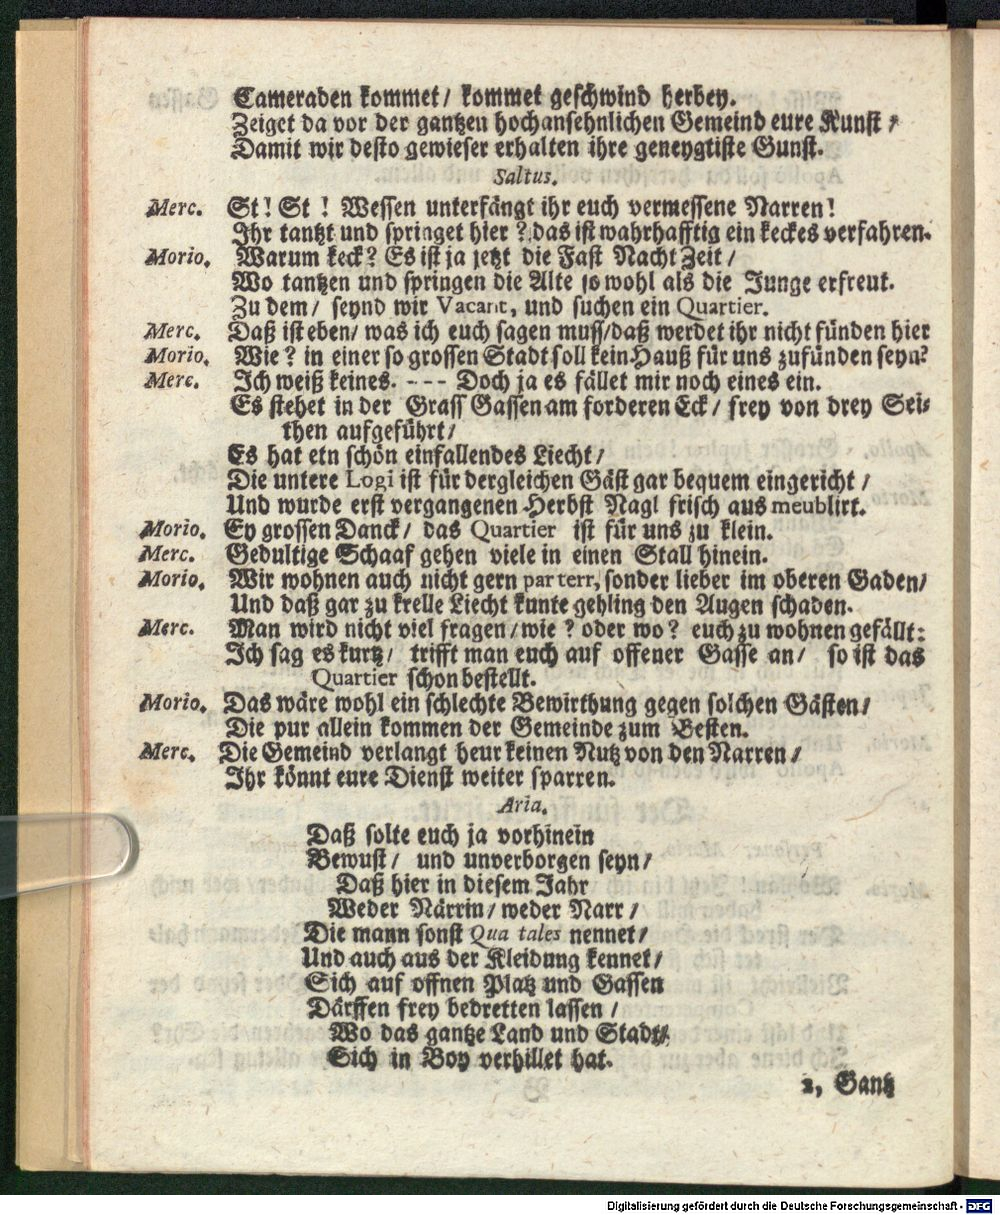 Cameraden kommet/ kommet geschwind herbey.
Zeiget da vor der gantzen hochansehnlichen Gemeind eure Kunst /
Damit wir desto gewieser erhalten ihre geneygtiste Gunst.
Saltus.
Merc. St! St! Wessen unterfängt ihr euch vermessene Narren!
Ihr tantzt und springet hier? das ist wahrhafftig ein keckes verfahren.
Morio. Warum keck? Es ist ja jetzt die Fast Nacht Zeit /
Wo tantzen und springen die Alte so wohl als die Junge erfreut.
Zu dem/ seynd wir Vacant, und suchen ein Quartier.
Merc. Daß ist eben/ was ich euch sagen muss/daß werdet ihr nicht fünden hier
Morio. Wie? in einer so grossen Stadt soll kein Hauß für uns zufünden seyn?
Merc. Ich weiß keines. --- Doch ja es fället mir noch eines ein.
Es stehet in der Grass Gassen am forderen Eck/ frey von drey Sei-
then aufgeführt/
Es hat etn schön einfallendes Liecht/
Die untere Logi ist für dergleichen Gäst gar bequem eingericht /
Und wurde erst vergangenen Herbst Nagl frisch aus meublirt.
Morio. Ey grossen Danck/ das Quartier ist für uns zu klein.
Merc. Gedultige Schaaf gehen viele in einen Stall hinein.
Morio. Wir wohnen auch nicht gern par terr, sonder lieber im oberen Gaden/
Und daß gar zu krelle Liecht kunte gehling den Augen schaden.
Merc. Man wird nicht viel fragen/wie? oder wo? euch zu wohnen gefällt:
Ich sag es kurtz/ trifft man euch auf offener Gasse an/ so ist das
Quartier schon bestellt.
Morio. Das wäre wohl ein schlechte Bewirthung gegen solchen Gästen/
Die pur allein kommen der Gemeinde zum Besten.
Merc. Die Gemeind verlangt heur keinen Nutz von den Narren /
Ihr könnt eure Dienst weiter sparren.
Aria.
Daß solte euch ja vorhinein
Bewust/ und unverborgen seyn/
Daß hier in diesem Jahr
Weder Närrin/ weder Narr /
Die mann sonst Qua tales nennet/
Und auch aus der Kleidung kennet/
Sich auf offnen Platz und Gassen
Därffen frey bedretten lassen /
Wo das gantze Land und Stadt/
Sich in Boy verhillet hat.
2, Gantz
Digitalisierung gefördert durch die Deutsche Forschungsgemeinschaft - DFG